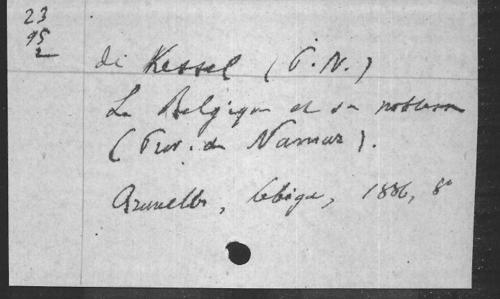 23
95
2
di Kessel (P. N.)
La Belgique et sa noblesse
(Prov. de Namur).
Bruxelles, Lebègue, 1886, 8°